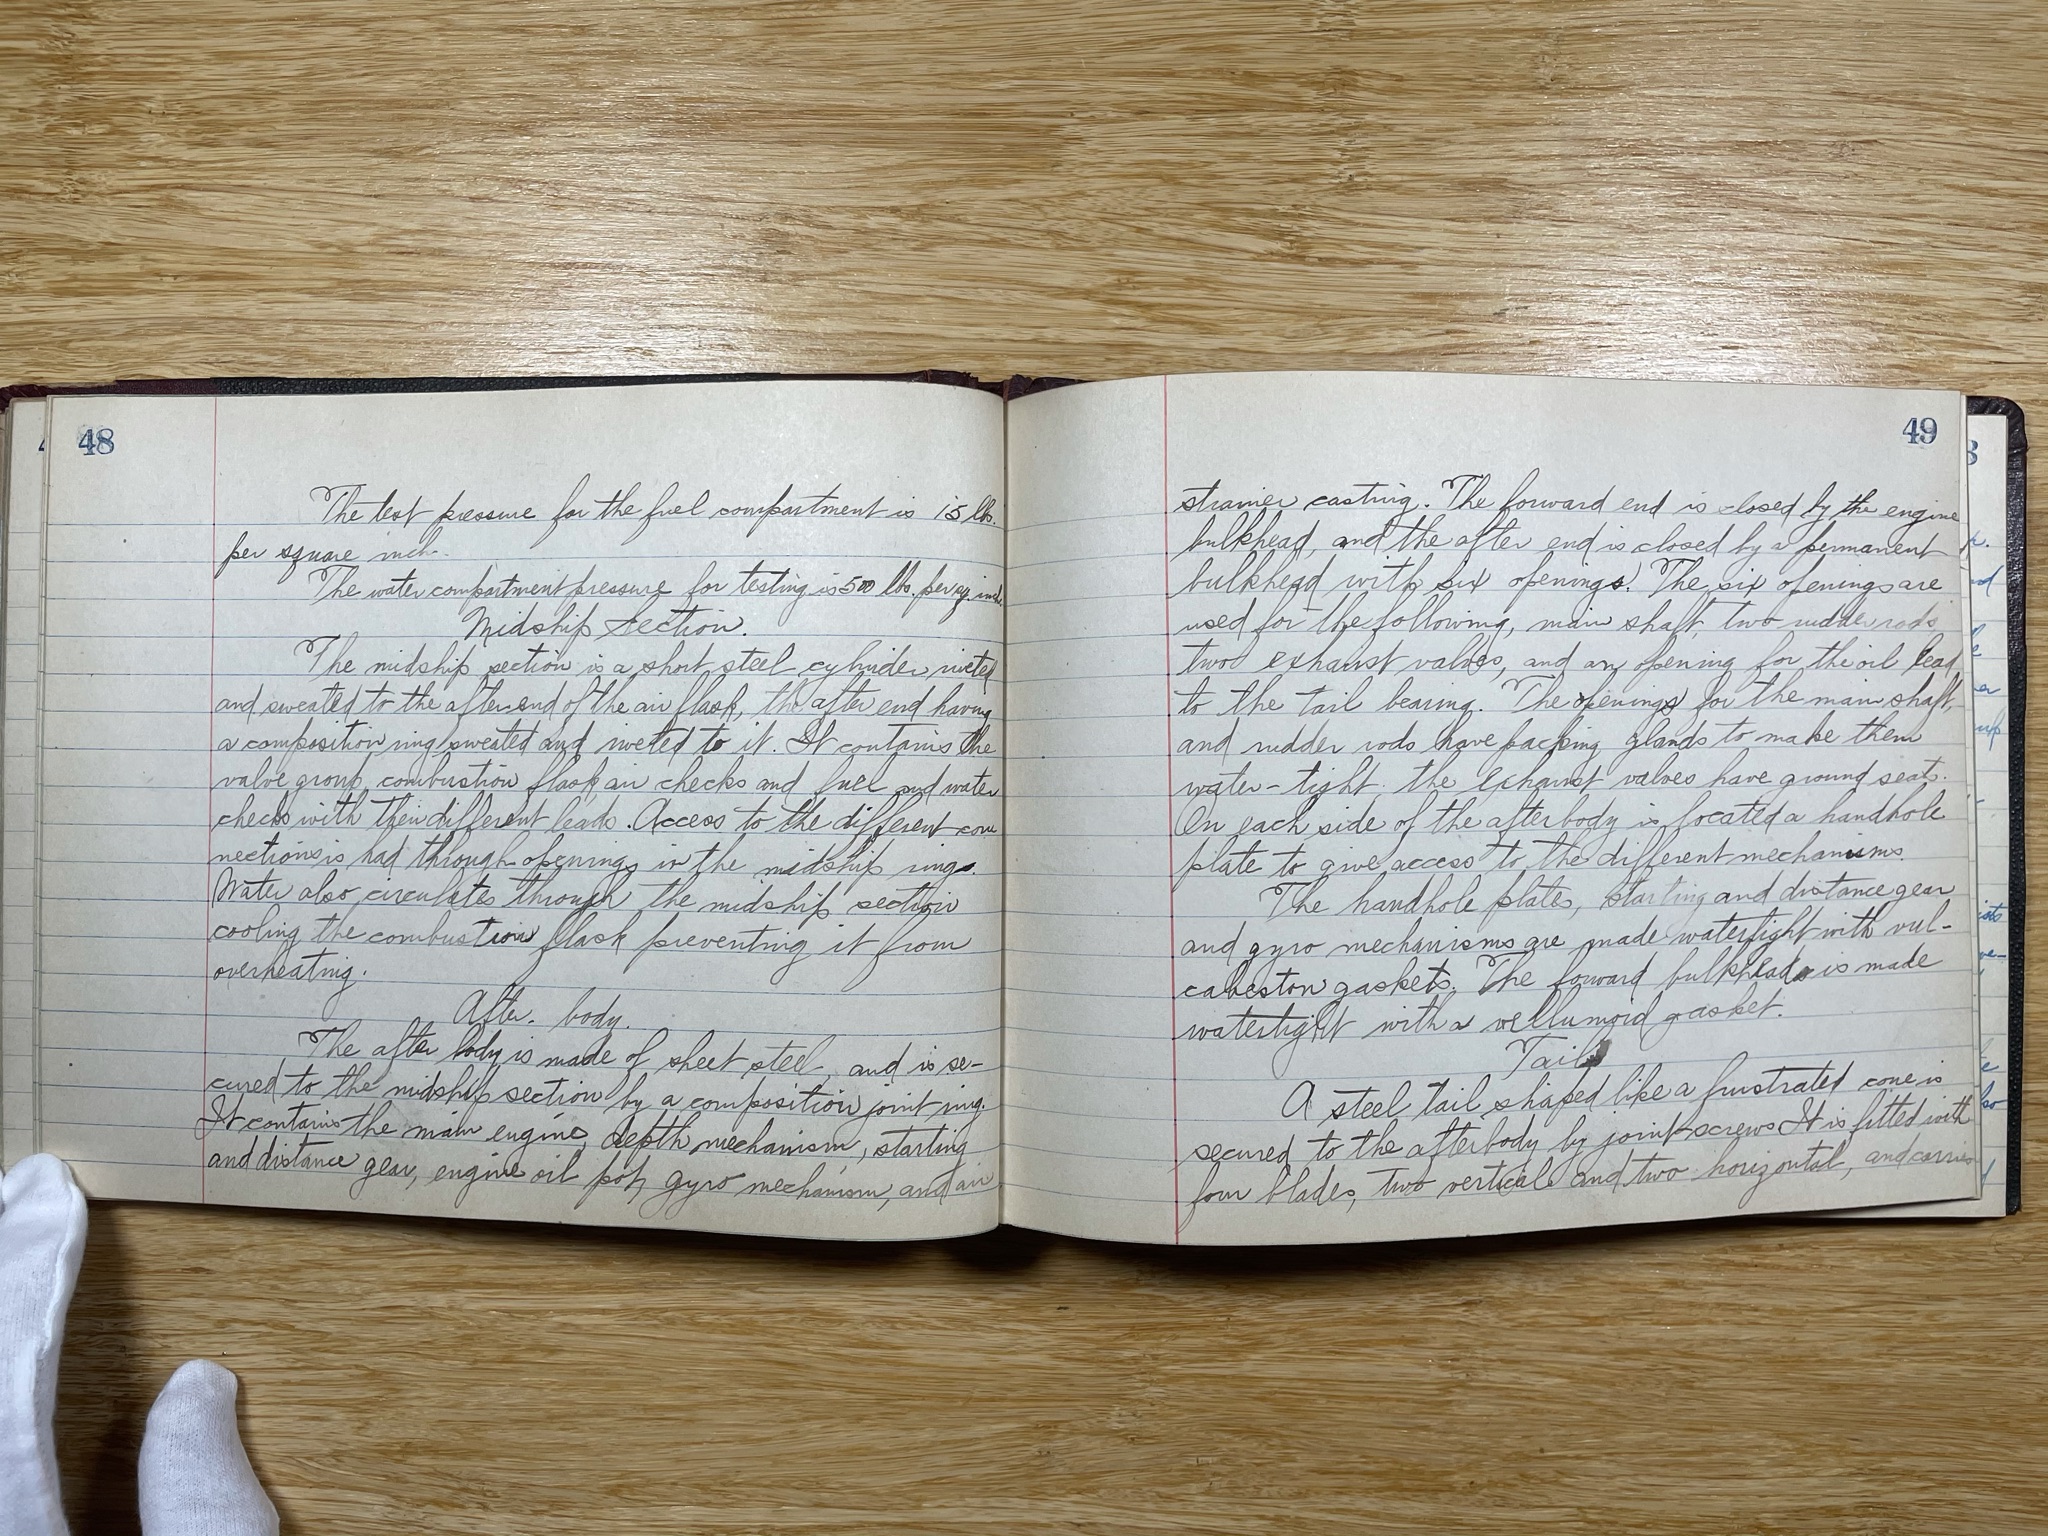 48
The test pressure for the fuel compartment is 15 lbs.
per square inch.
The water compartment pressure for testing is 500 lbs. per sq. inch.
Midship Section.
The midship section is a short steel cylinder riveted
and sweated to the after end of the air flask, the after end having
a composition ring sweated and riveted to it. It contains the
valve group, combustion flask, air checks and fuel and water
checks with their different leads. Access to the different con
nections is had through openings in the midship rings.
Water also circulates through the midship section
cooling the combustion flask preventing it from
overheating.
After. body.
The after body is made of sheet steel, and is se-
cured to the midship section by a composition joint ring.
It contains the main engine, depth mechanism, starting
and distance gear, engine oil pot, gyro mechanism, and air
49
strainer casting. The forward end is closed by the engine
bulkhead, and the after end is closed by a permanent
bulkhead with six openings. The six openings are
used for the following, main shaft, two rudder rods
two exhaust valves, and an opening for the oil lead
to the tail bearing. The openings for the main shaft,
and rudder rods have packing glands to make them
water-tight. the exhaust valves have ground seats.
On each side of the afterbody is located a handhole
plate to give access to the different mechanisms
The handhole plates, starting and distance gear
and gyro mechanisms are made watertight with vul-
cabeston gaskets. The forward bulkhead is made
watertight with a vellumoid gasket.
Tail
A steel tail shaped like a frustrated cone is
secured to the afterbody by joint-screws It is fitted with
four blades, two vertical and two horizontal, and carries